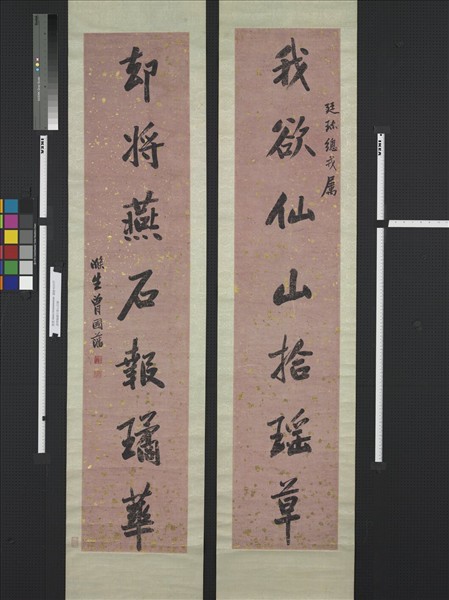 我欲仙山拾瑶草
廷珎總戎屬
却將燕石報璚華
滌生曾國藩